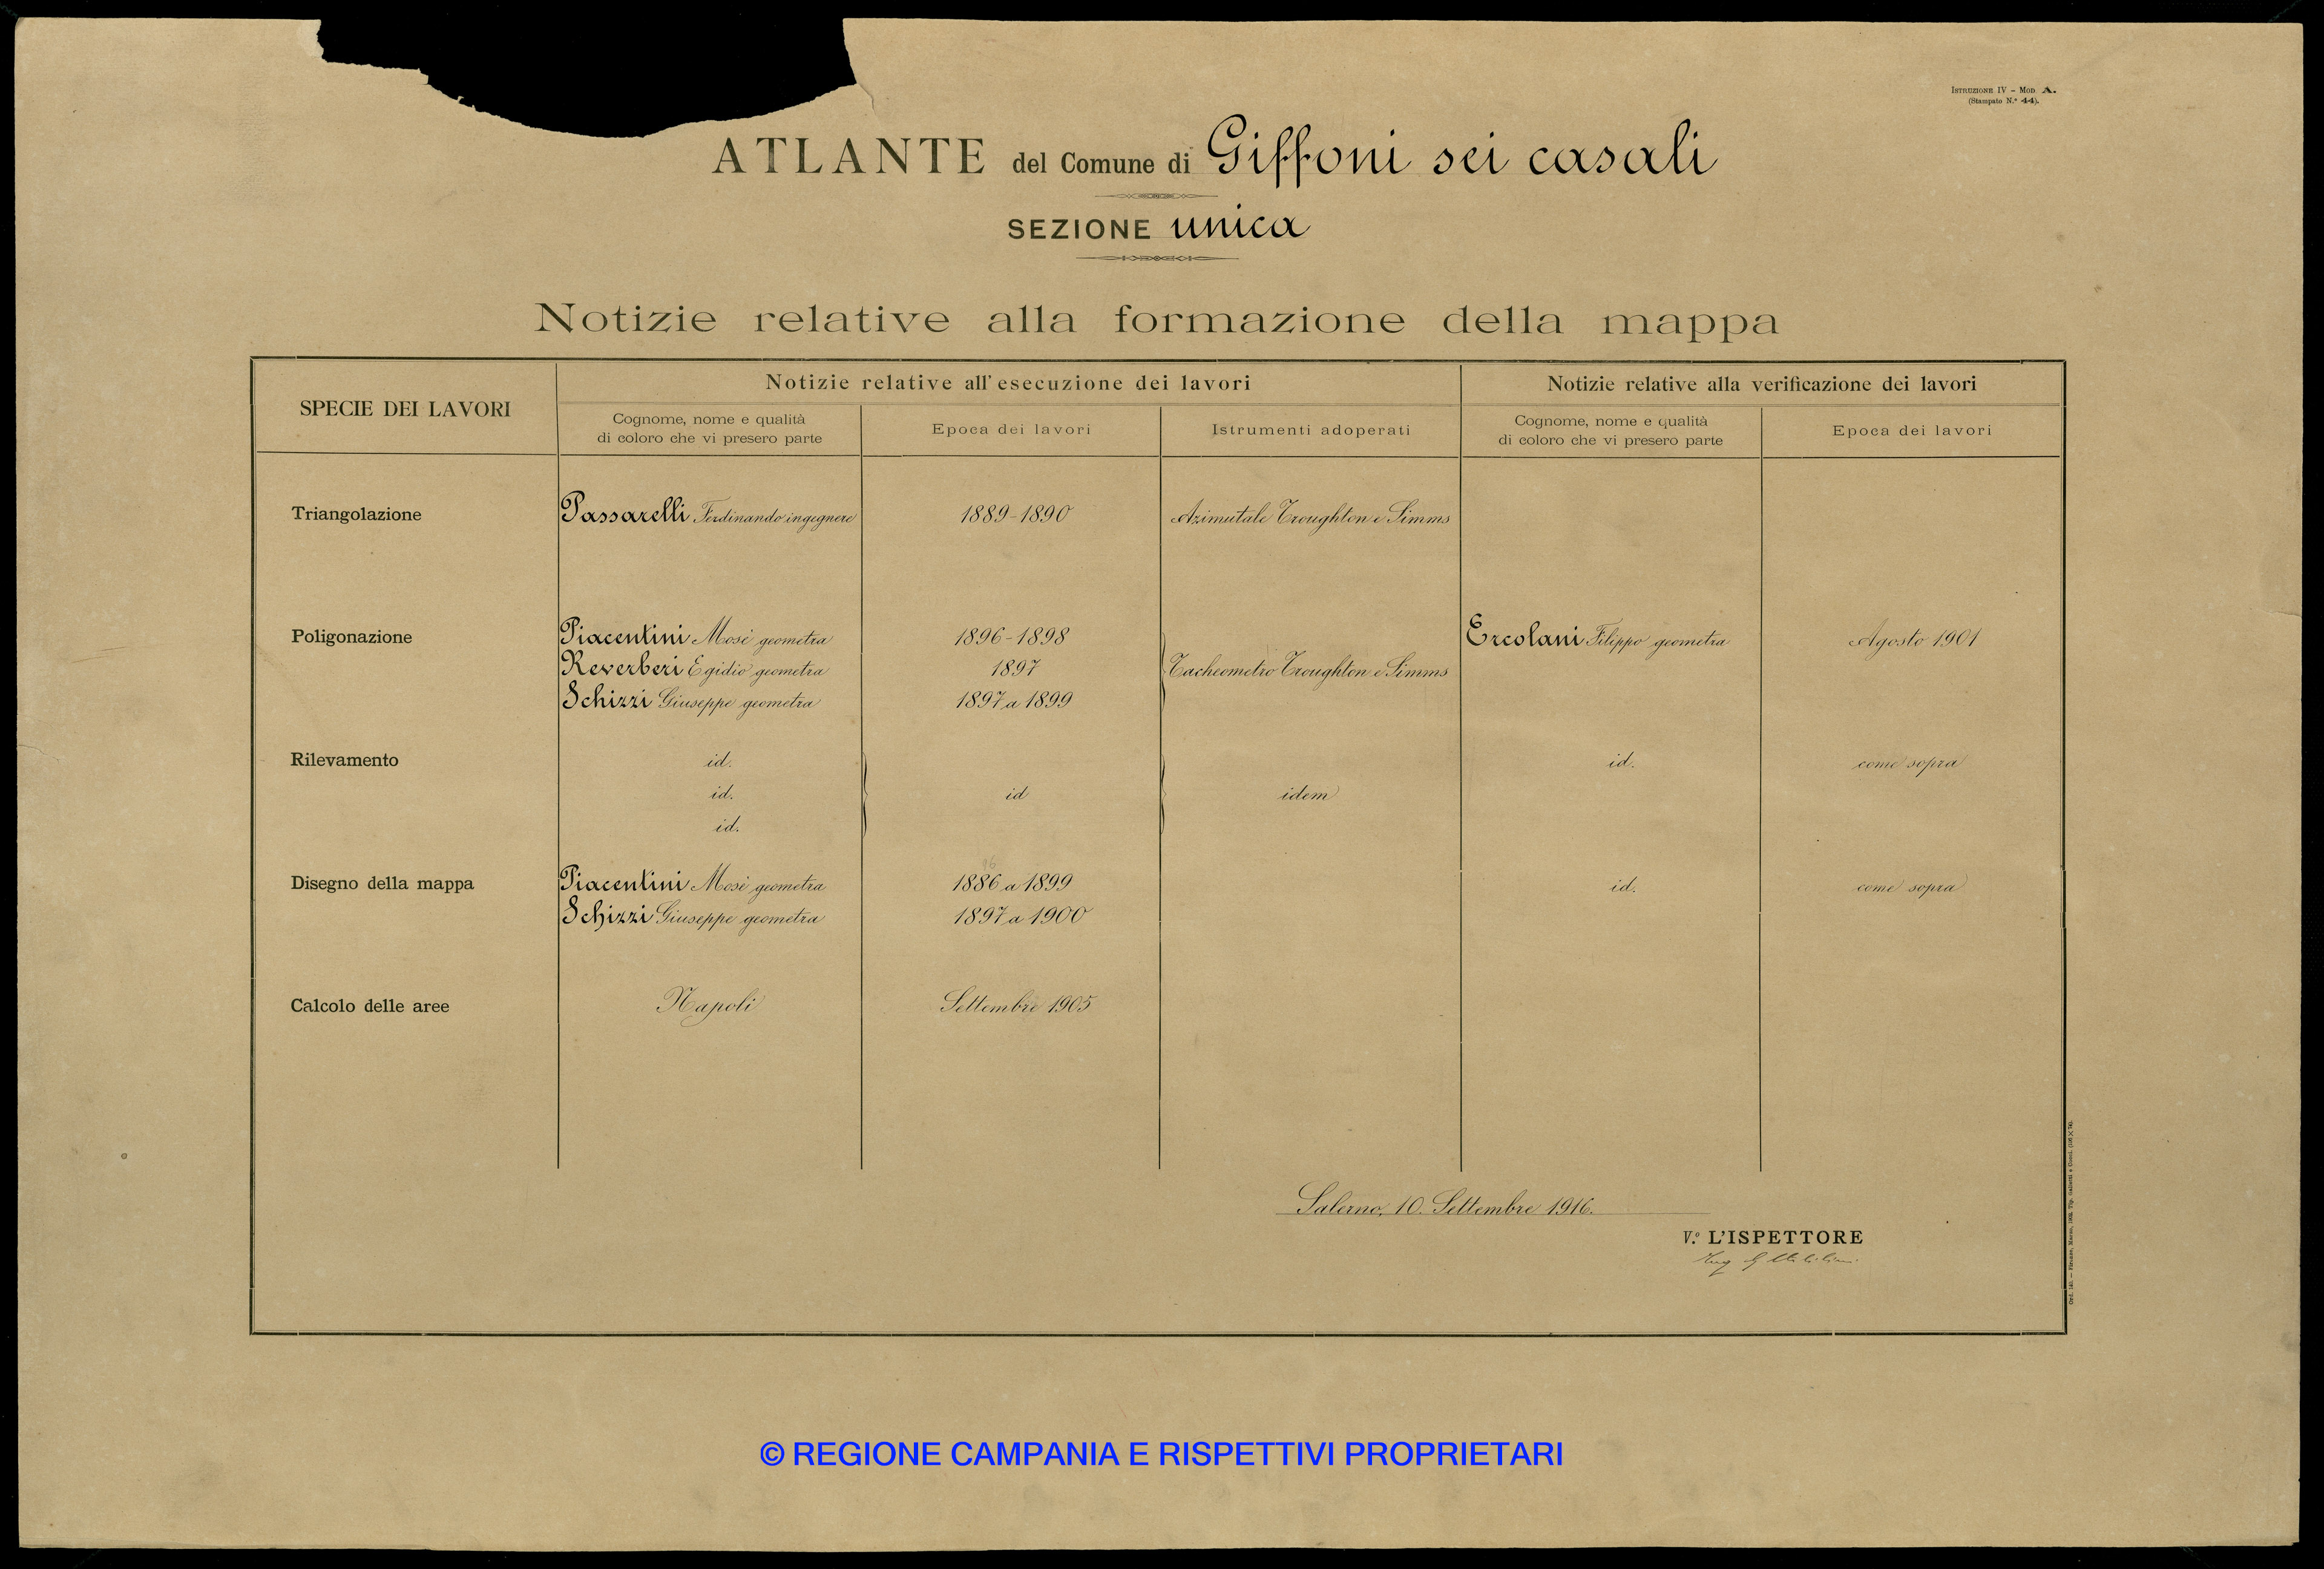 ISTRUZIONE IV - MOD. A.
(Stampato N.° 44).
ATLANTE del Comune di Giffoni sei casali
SEZIONE unica
Notizie relative alla formazione della mappa
SPECIE DEI LAVORI
Notizie relative all'esecuzione dei lavori
Notizie relative alla verificazione dei lavori
Cognome, nome e qualità
di coloro che vi presero parte
Epoca dei lavori
Istrumenti adoperati
Cognome, nome e qualità
di coloro che vi presero parte
Epoca dei lavori
Triangolazione Passarelli Ferdinando ingegnere 1889-1890 Azimutale Troughton e Simms
Poligonazione Piacentini Mosè geometra 1896-1898 Ercolani Filippo geometra Agosto 1901
Reverberi Egidio geometra 1897 Tacheometro Troughton e Simms
Schizzi Giuseppe geometra 1897 a 1899
Rilevamento id. id. come sopra
id. id idem
id.
96
Disegno della mappa Piacentini Mosè geometra 1886 a 1899 id. come sopra
Schizzi Giuseppe geometra 1897 a 1900
Calcolo delle aree Napoli Settembre 1905
Salerno, 10 Settembre 1916.
V.° L'ISPETTORE
Ing G
© REGIONE CAMPANIA E RISPETTIVI PROPRIETARI